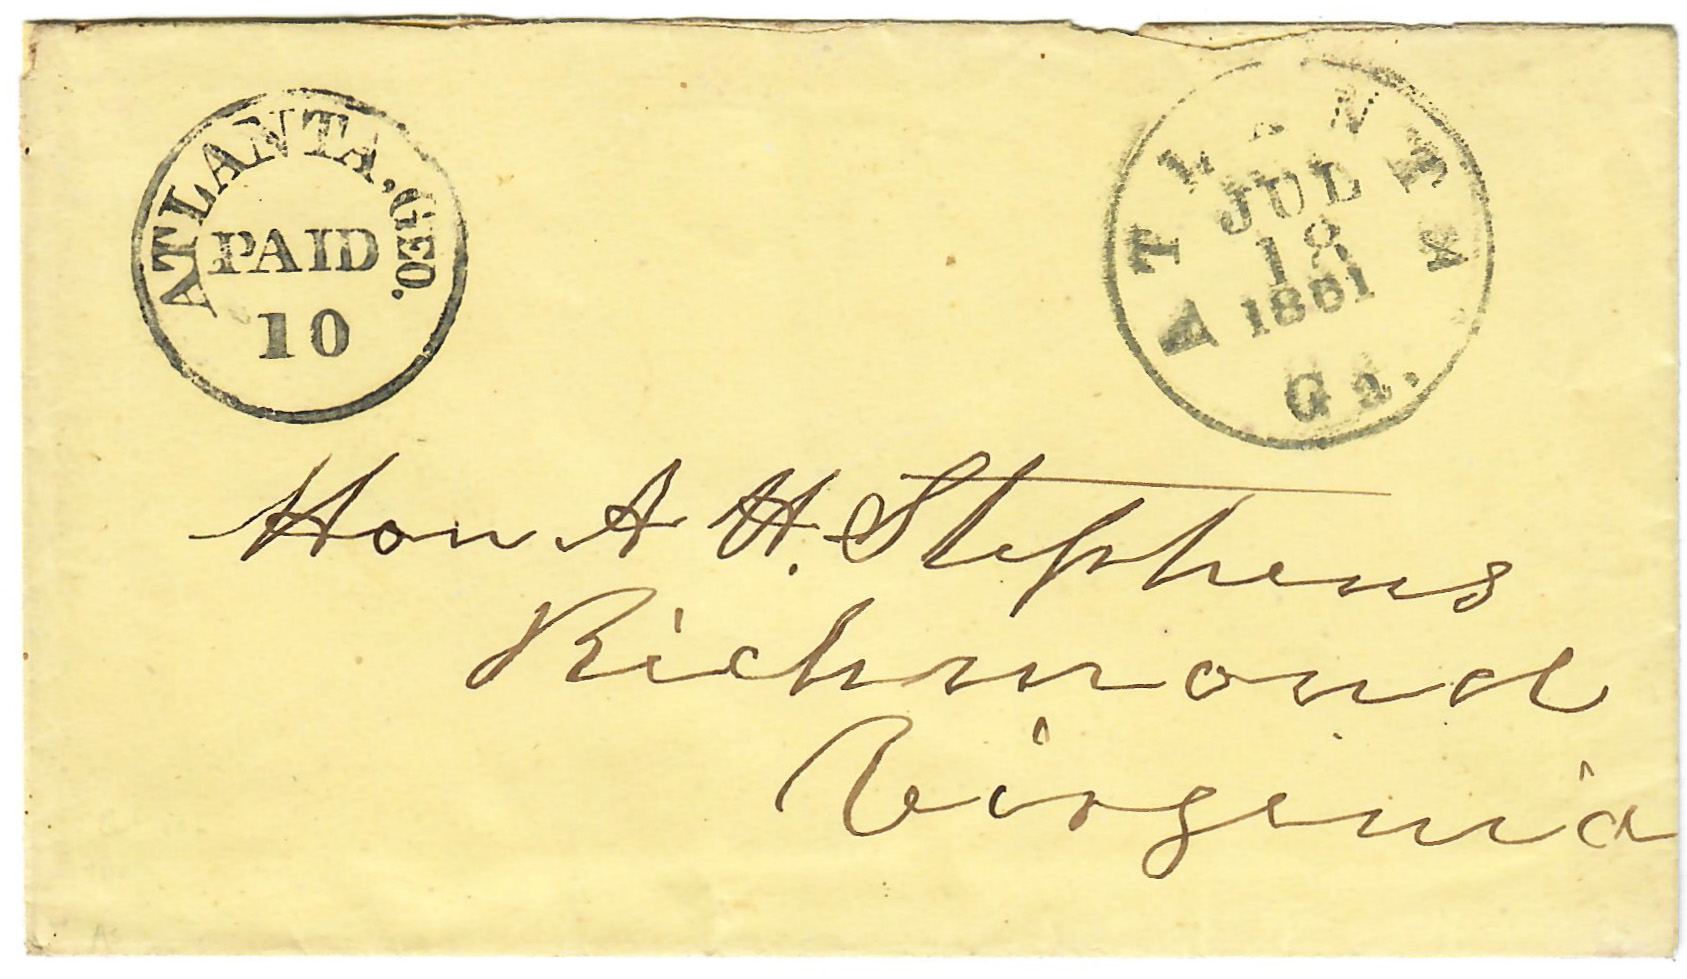 ATLANTA, GEO.
PAID
10
ATLANTA
JUL
18
1861
Ga.
Hon A H. Stephens
Richmond
Virginia